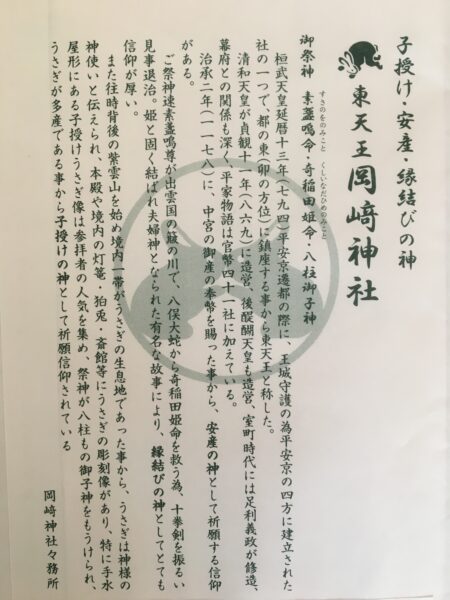 子授け・安産・縁結びの神
東天王 岡﨑神社
御祭神　素盞鳴命・奇稲田姫命・八柱御子神
すさのをのみこと　くしいなだひめのみこと
桓武天皇延暦十三年(七九四)平安京遷都の際に、王城守護の為平安京の四方に建立された
社の一つで、都の東(卯の方位)に鎮座する事から東天王と称した。
清和天皇が貞観十一年(八六九)に造営、後醍醐天皇も造営、室町時代には足利義政が修造、
幕府との関係も深く、平家物語は官幣四十一社に加えている。
治承二年(一一七八)に、中宮の御産の奉幣を賜った事から、安産の神として祈願する信仰
がある。
ご祭神速素盞鳴尊が出雲国の簸の川で、八俣大蛇から奇稲田姫命を救う為、十拳剣を振るい
見事退治。姫と固く結ばれ夫婦神となられた有名な故事により、縁結びの神としてとても
信仰が厚い。
また往時背後の紫雲山を始め境内一帯がうさぎの生息地であった事から、うさぎは神様の
神使いと伝えられ、本殿や境内の灯篭・狛兎・斎館等にうさぎの彫刻像があり、特に手水
屋形にある子授けうさぎ像は参拝者の人気を集め、祭神が八柱もの御子神をもうけられ、
うさぎが多産である事から子授けの神として祈願信仰されている
岡﨑神社々務所